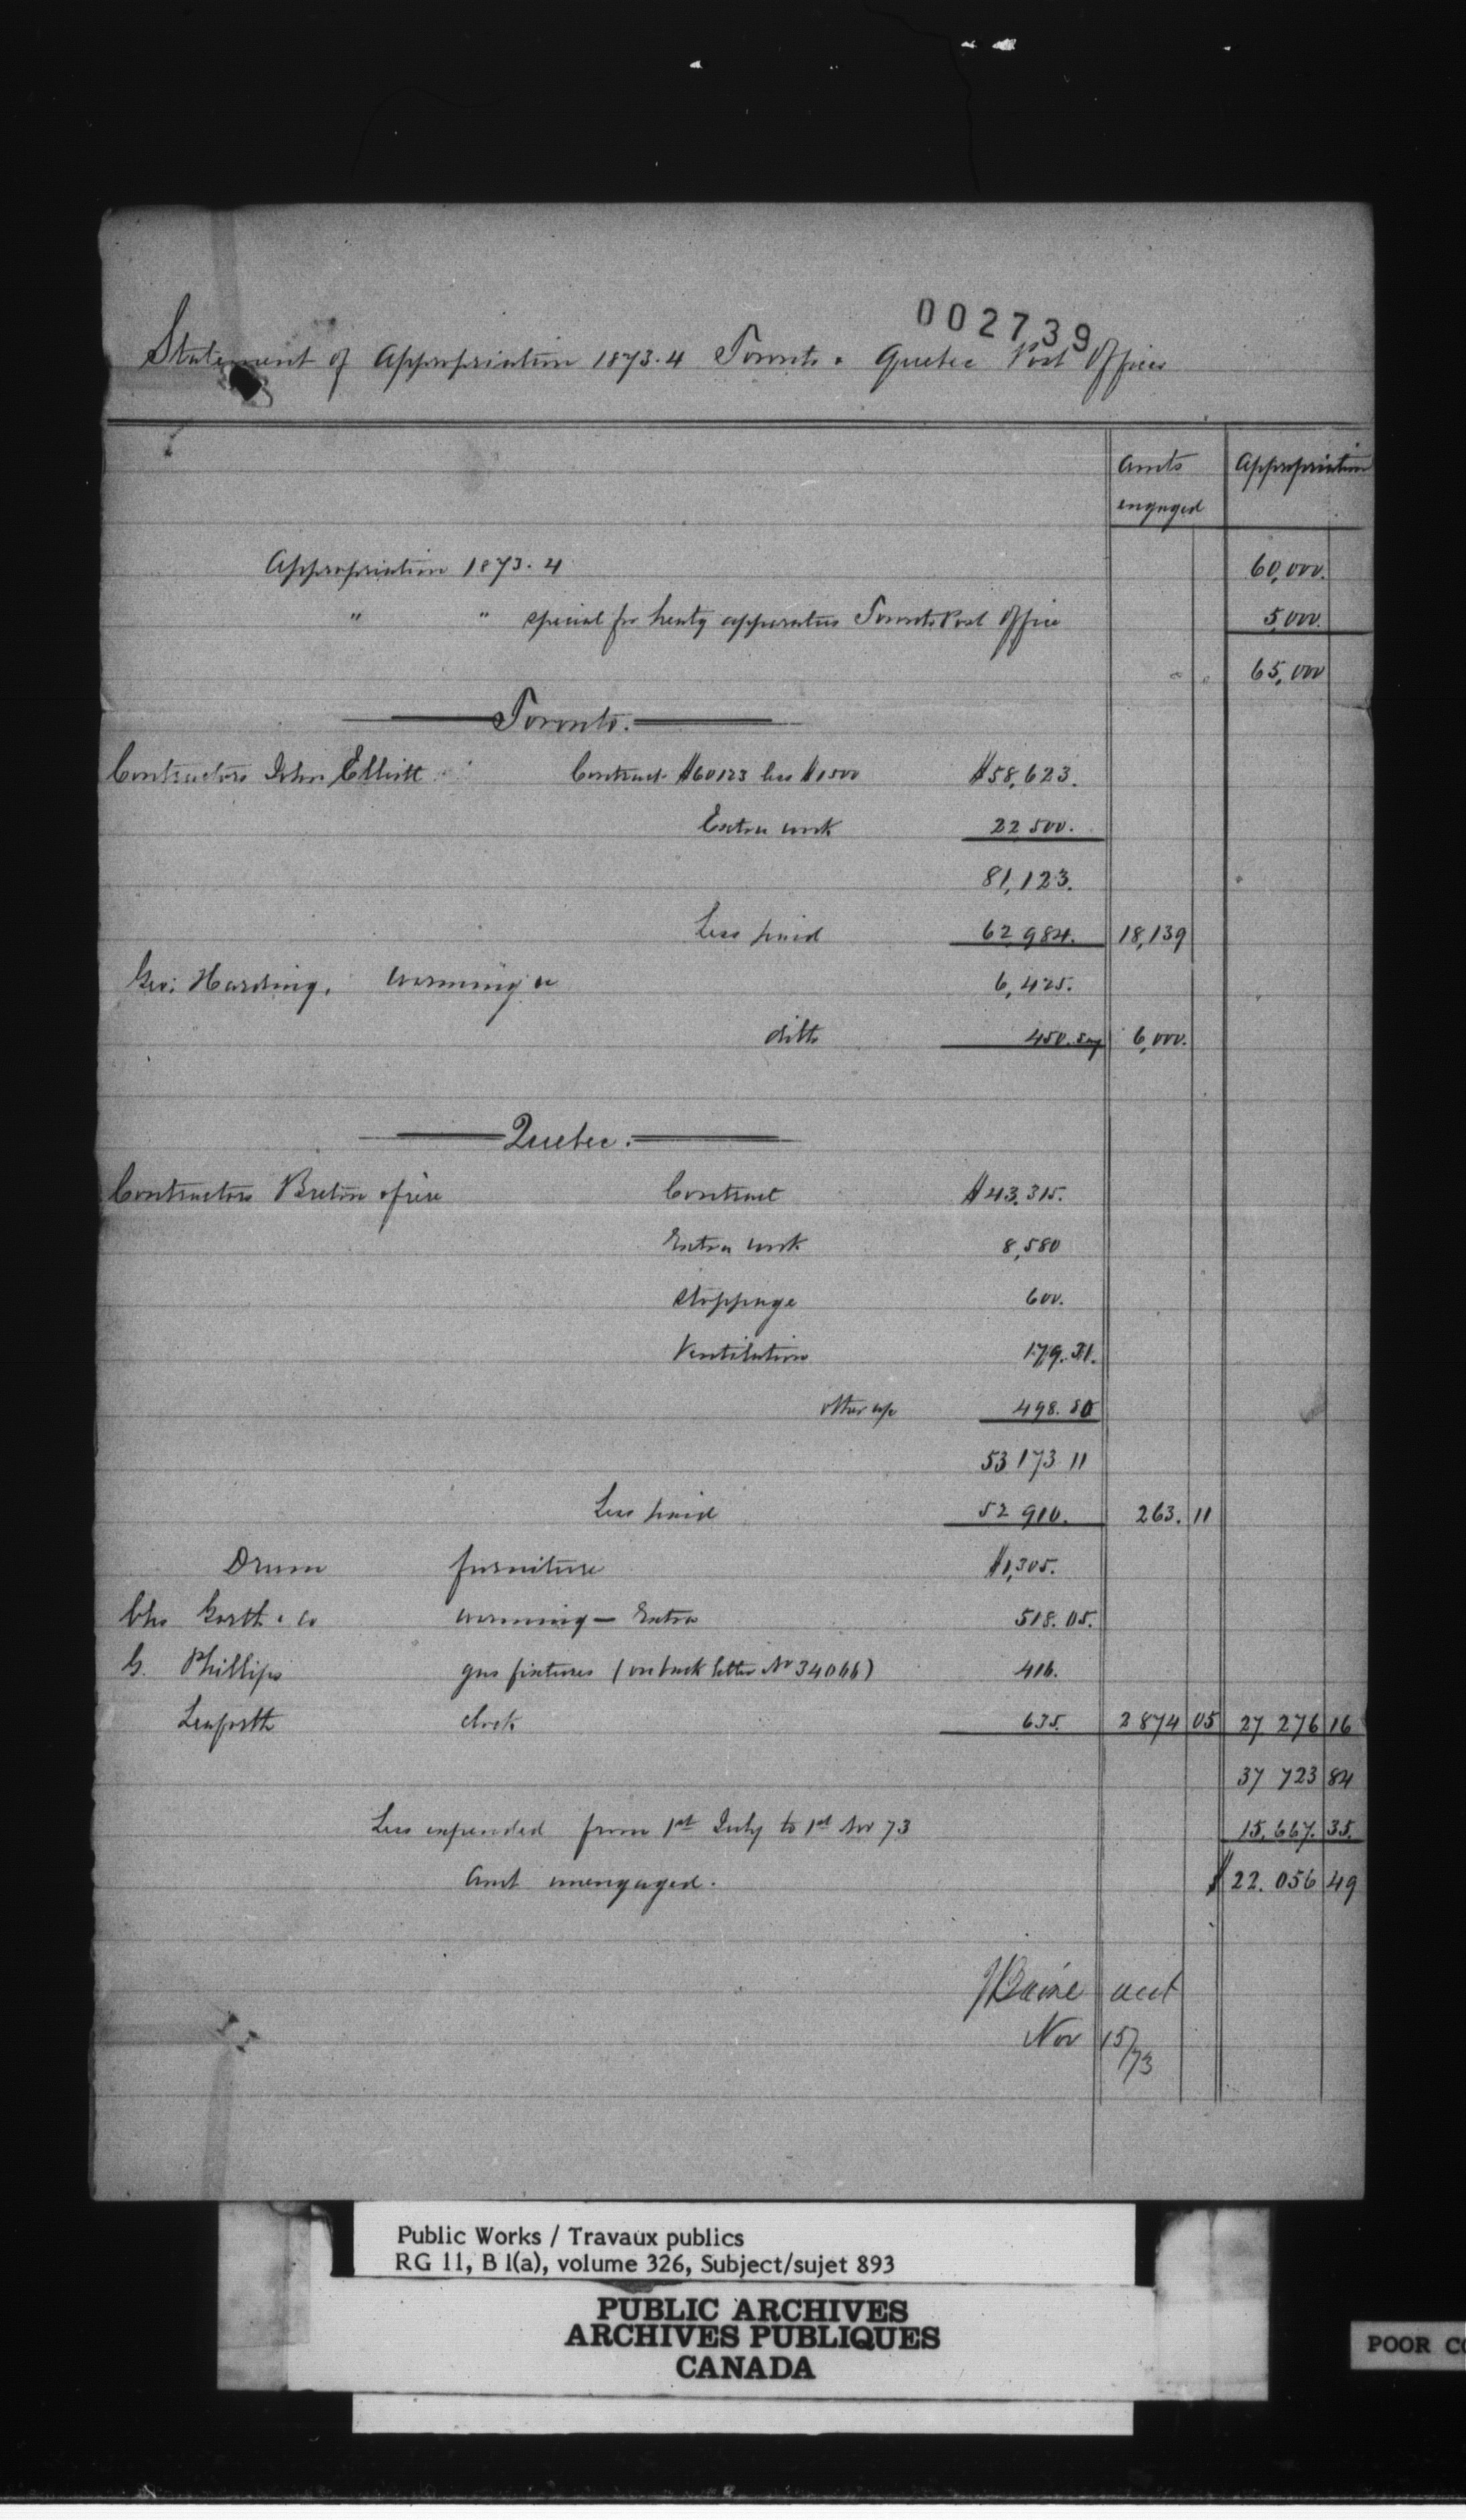 002739
Statement of Appropriation 1873.4 Toronto & Quebec Post Offices
Amts engaged Appropriation
Appropriation 1873.4 60,000.
" " special for heatg apparatus Toronto Post Office 5,000.
65,000
Toronto.
Contractors John Elliott Contract $60123 less $1500 $58,623.
Extra work 22,500.
81,123.
Less paid 62,984. 18,139
Geo: Harding, warming &c 6,425.
ditto 450. say 6,000.
Quebec.
Contractors Breton & frère Contract $43,315.
Extra work 8,580
Stoppage 600.
Ventilation 179.31.
other up 498.80
53 173 11
Less paid 52 910. 263. 11
Drum furniture $1,305.
Chs Garth & Co warming — Extra 518.05.
G. Phillips gas fixtures (on back letter No 34066) 416.
Seaforth clock 635. 2 874 05 27 276 16
37 723 84
Less expended from 1st July to 1st Nov 73 15,667.35.
Amt unengaged. $22.056 49
acct
Nov 15/73
Public Works / Travaux publics
RG 11, B 1(a), volume 326, Subject/sujet 893
PUBLIC ARCHIVES
ARCHIVES PUBLIQUES
CANADA
POOR CO